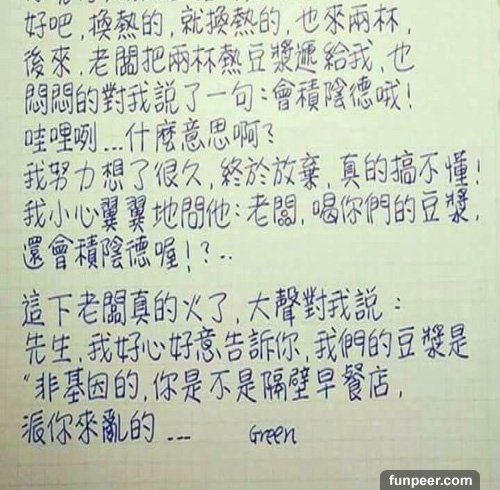 好吧,換熱的,就換熱的,也來兩杯,
後來,老闆把兩杯熱豆漿遞給我,也
悶悶的對我說了一句:會積陰德哦!
哇哩咧...什麼意思啊?
我努力想了很久,終於放棄,真的搞不懂!
我小心翼翼地問他:老闆,喝你們的豆漿,
還會積陰德喔!?..
這下老闆真的火了,大聲對我說:
先生,我好心好意告訴你,我們的豆漿是
"非基因的,你是不是隔壁早餐店,
派你來亂的...
Green
funpeer.com